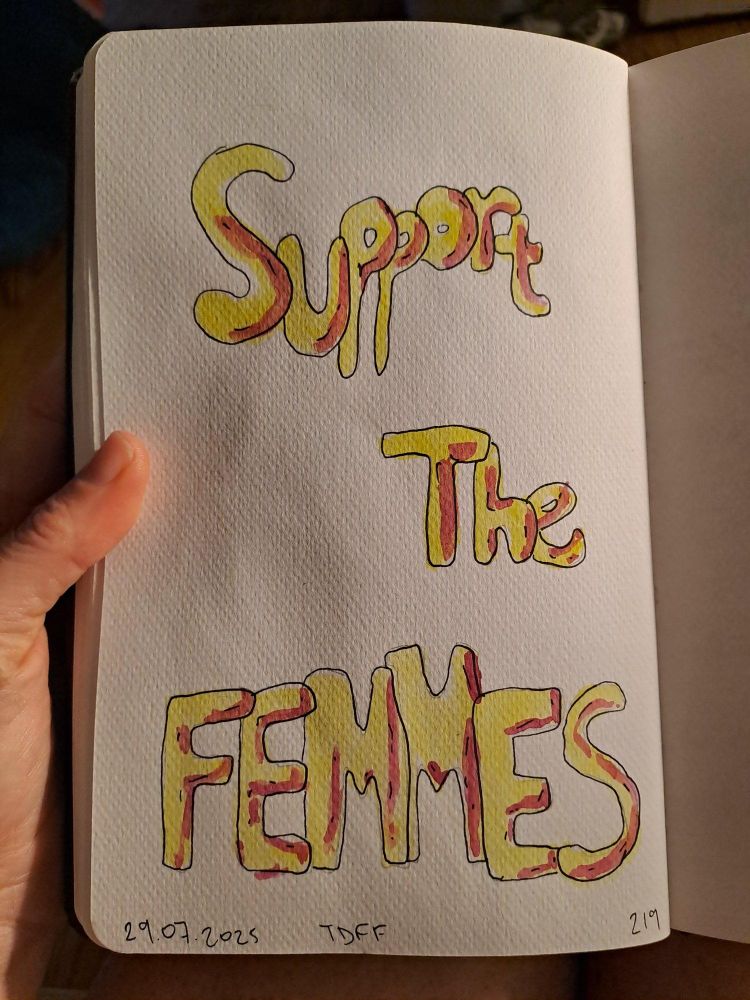 Support
The
FEMMES
29.07.2025 TDFF 219